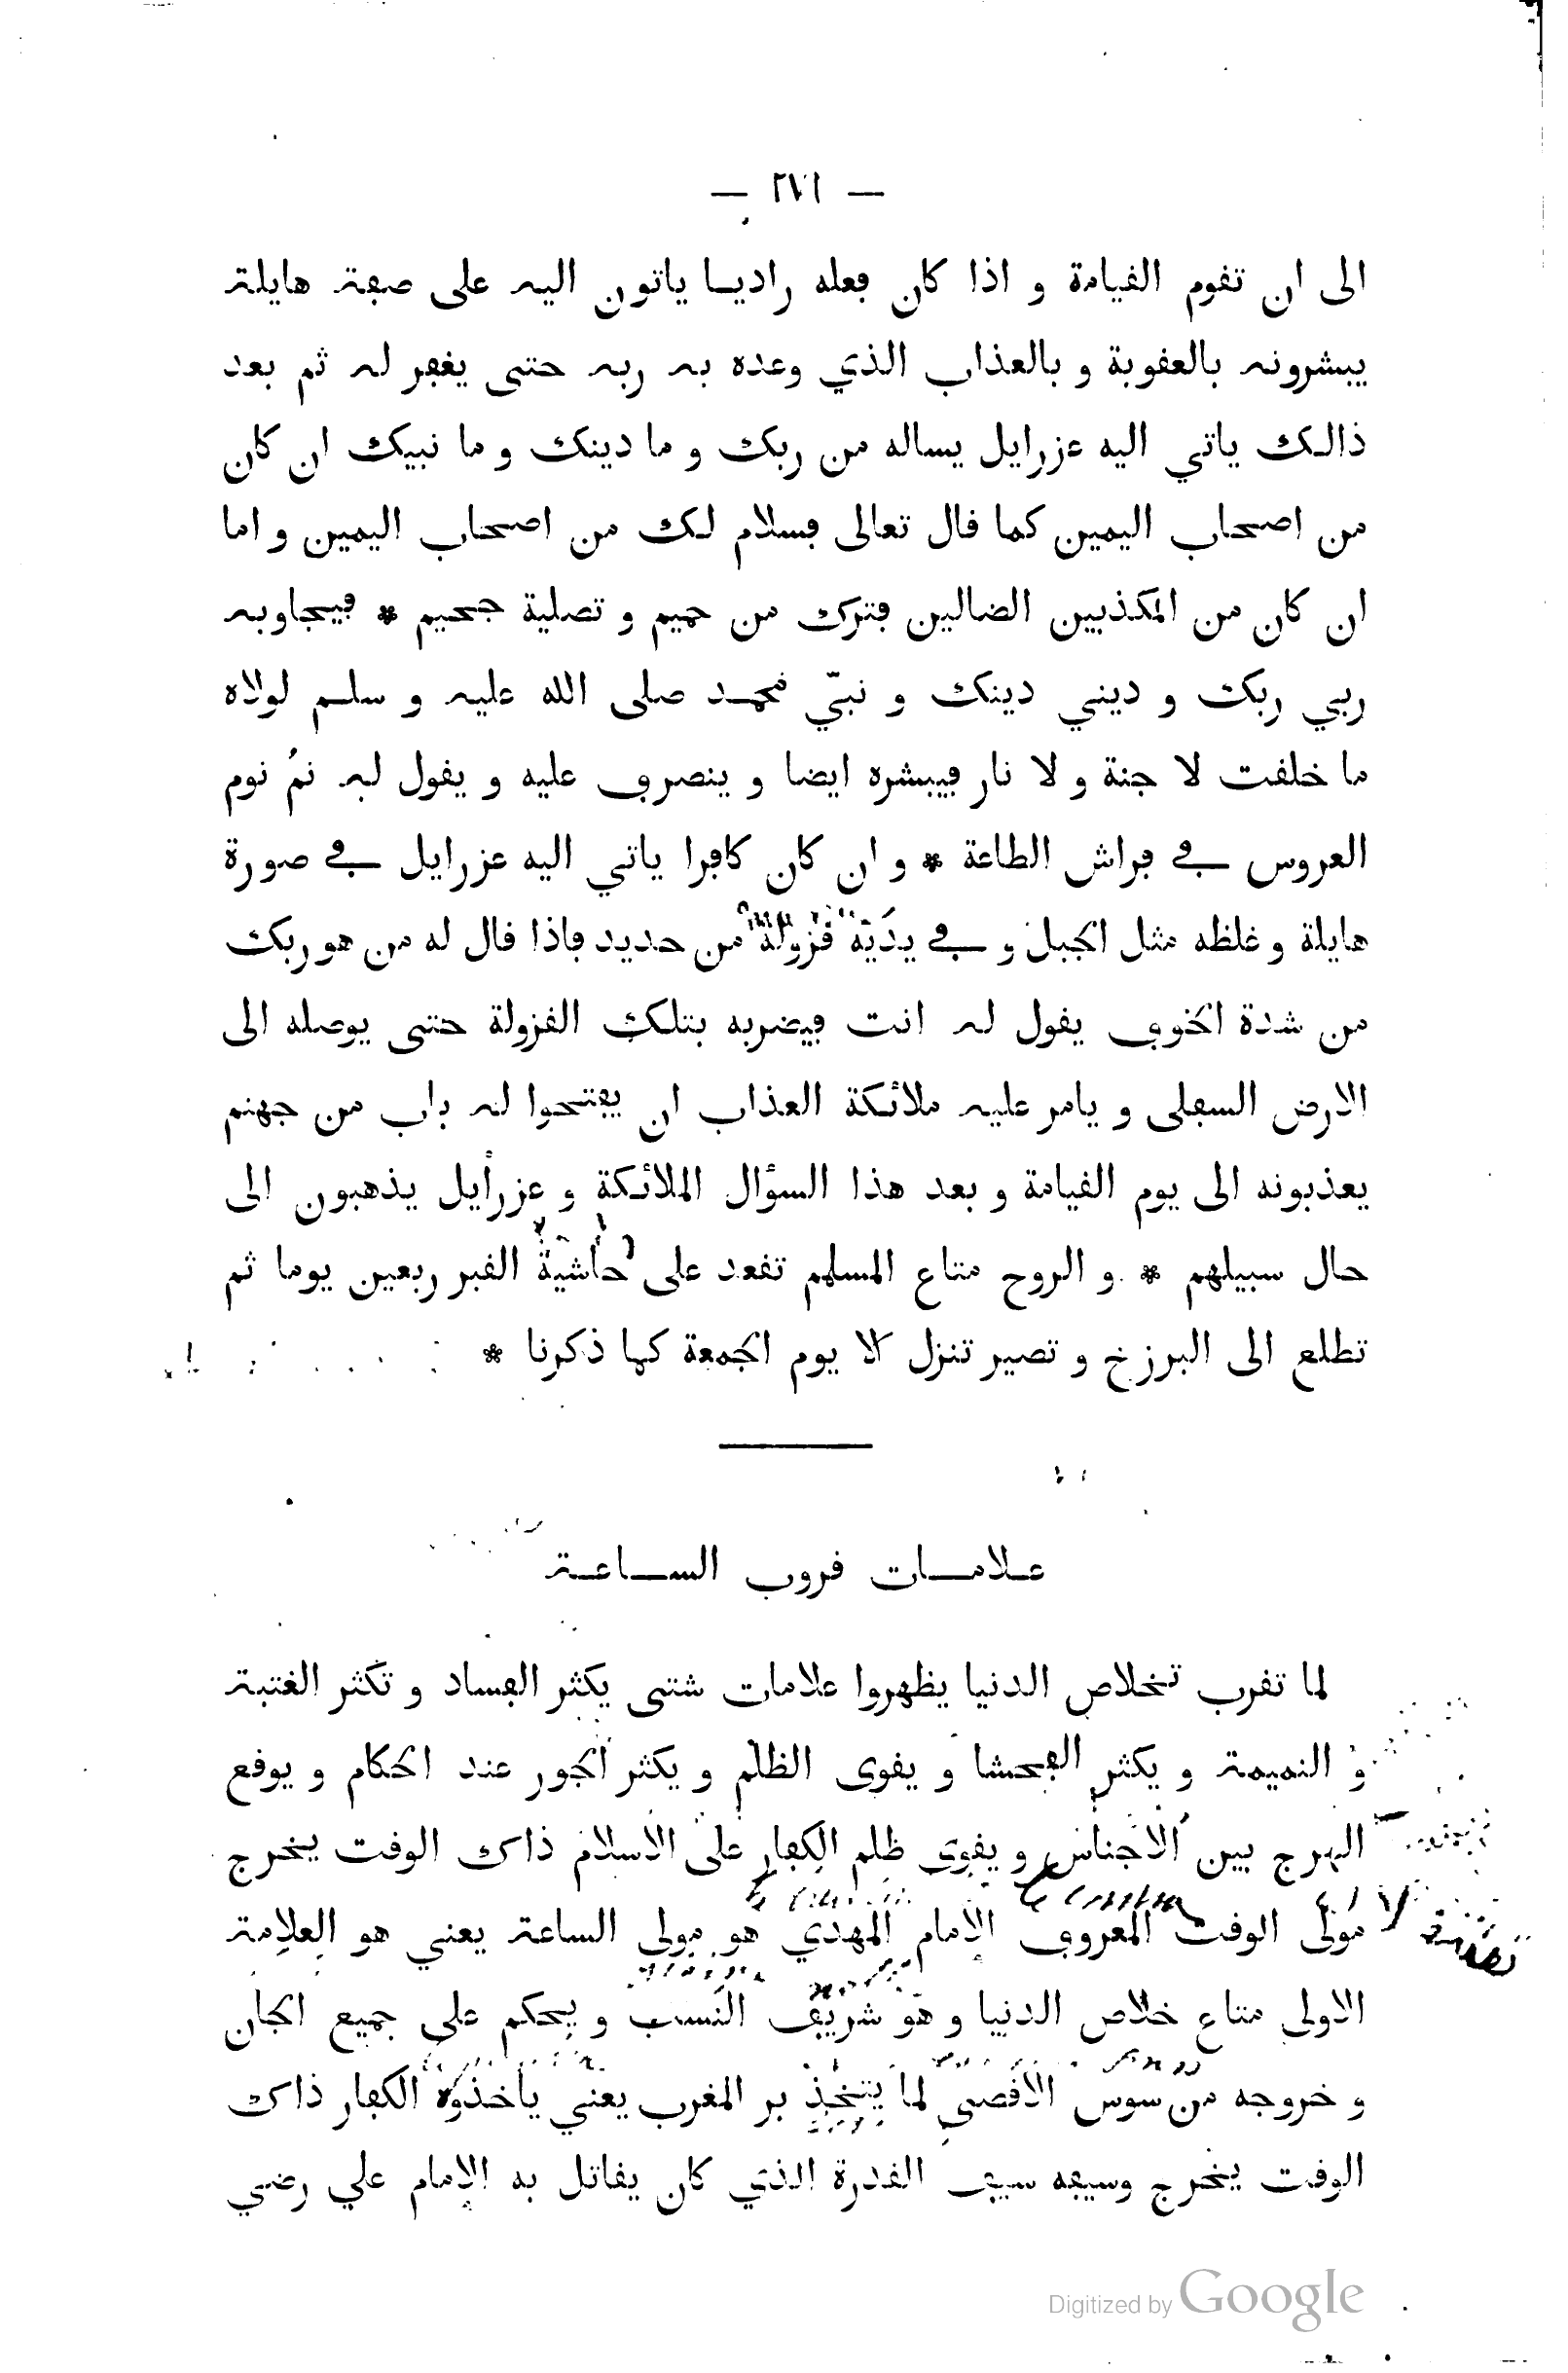 — ٢٧١ —
الى ان تقوم القيامة و اذا كان فعله راديا ياتون اليه على صفة هايلة
يبشرونه بالعقوبة و بالعذاب الذي وعده به ربه حتى يغفر له ثم بعد
ذالك ياتي اليه عزرايل يساله من ربك و ما دينك و ما نبيك ان كان
من اصحاب اليمين كما قال تعالى فسلام لك من اصحاب اليمين و اما
ان كان من المكذبين الضالين فترك من حميم و تصلية جحيم * فيجاوبه
ربي ربك و ديني دينك و نبيّ محمد صلى الله عليه و سلم لولاه
ما خلقت لا جنة و لا نار فيبشره ايضا و ينصرف عليه و يقول له نمْ نوم
العروس في فراش الطاعة * و ان كان كافرا ياتي اليه عزرايل في صورة
هايلة و غلظه مثل الجبل و في يديه قزولة من حديد فاذا قال له من هو ربك
من شدة الخوف يقول له انت فيضربه بتلك القزولة حتى يوصله الى
الارض السفلى و يامر عليه ملائكة العذاب ان يفتحوا له باب من جهنم
يعذبونه الى يوم القيامة و بعد هذا السؤال الملائكة و عزرايل يذهبون الى
حال سبيلهم * و الروح متاع المسلم تقعد على حاشية القبر ربعين يوما ثم
تطلع الى البرزخ و تصير تنزل كلا يوم الجمعة كما ذكرنا *
علامات قروب الساعة
لما تقرب تخلاص الدنيا يظهروا علامات شتى يكثر الفساد و تكثر الغتبة
و النميمة و يكثر الفحشا و يقوى الظلم و يكثر الجور عند الحكام و يوقع
الهرج بين الاجناس و يقوى ظلم الكفار على الاسلام ذاك الوقت يخرج
مولى الوقت المعروف الإمام المهدي هو مولى الساعة يعني هو العلامة
الاولى متاع خلاص الدنيا و هو شريف النسب و يحكم على جميع الجان
و خروجه من سوس الاقصى لما يتخذ بر المغرب يعني ياخذوه الكفار ذاك
الوقت يخرج وسيفه سيف القدرة الذي كان يقاتل به الإمام علي رضي
Digitized by Google